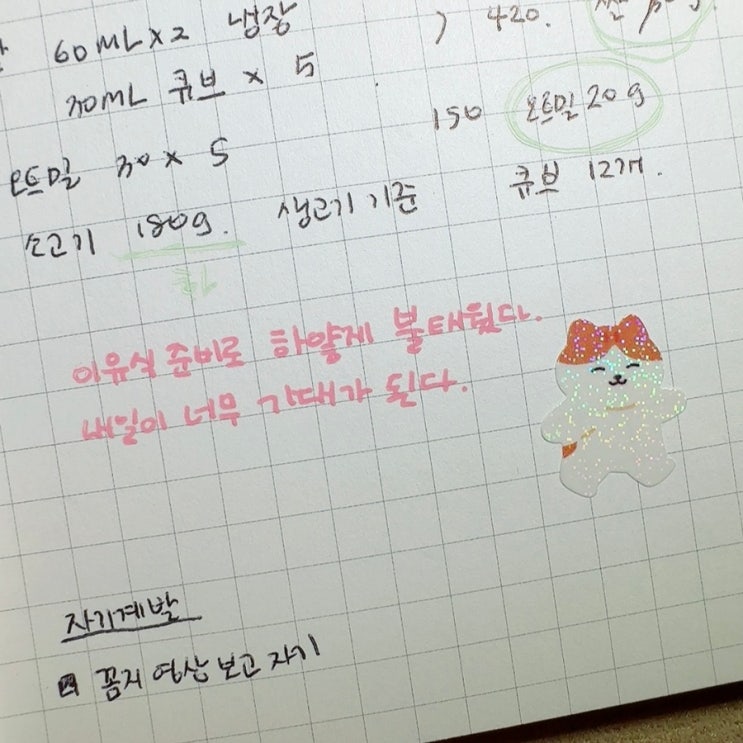 60ML x 2 냉장
30ML 큐브 x 5
오트밀 30 x 5
소고기 180g. 생고기 기준
) 420.
150 오트밀 20g
큐브 12개.
이유식 준비로 하얗게 불태웠다.
내일이 너무 기대가 된다.
자기계발
꼼지 영상 보고 자기